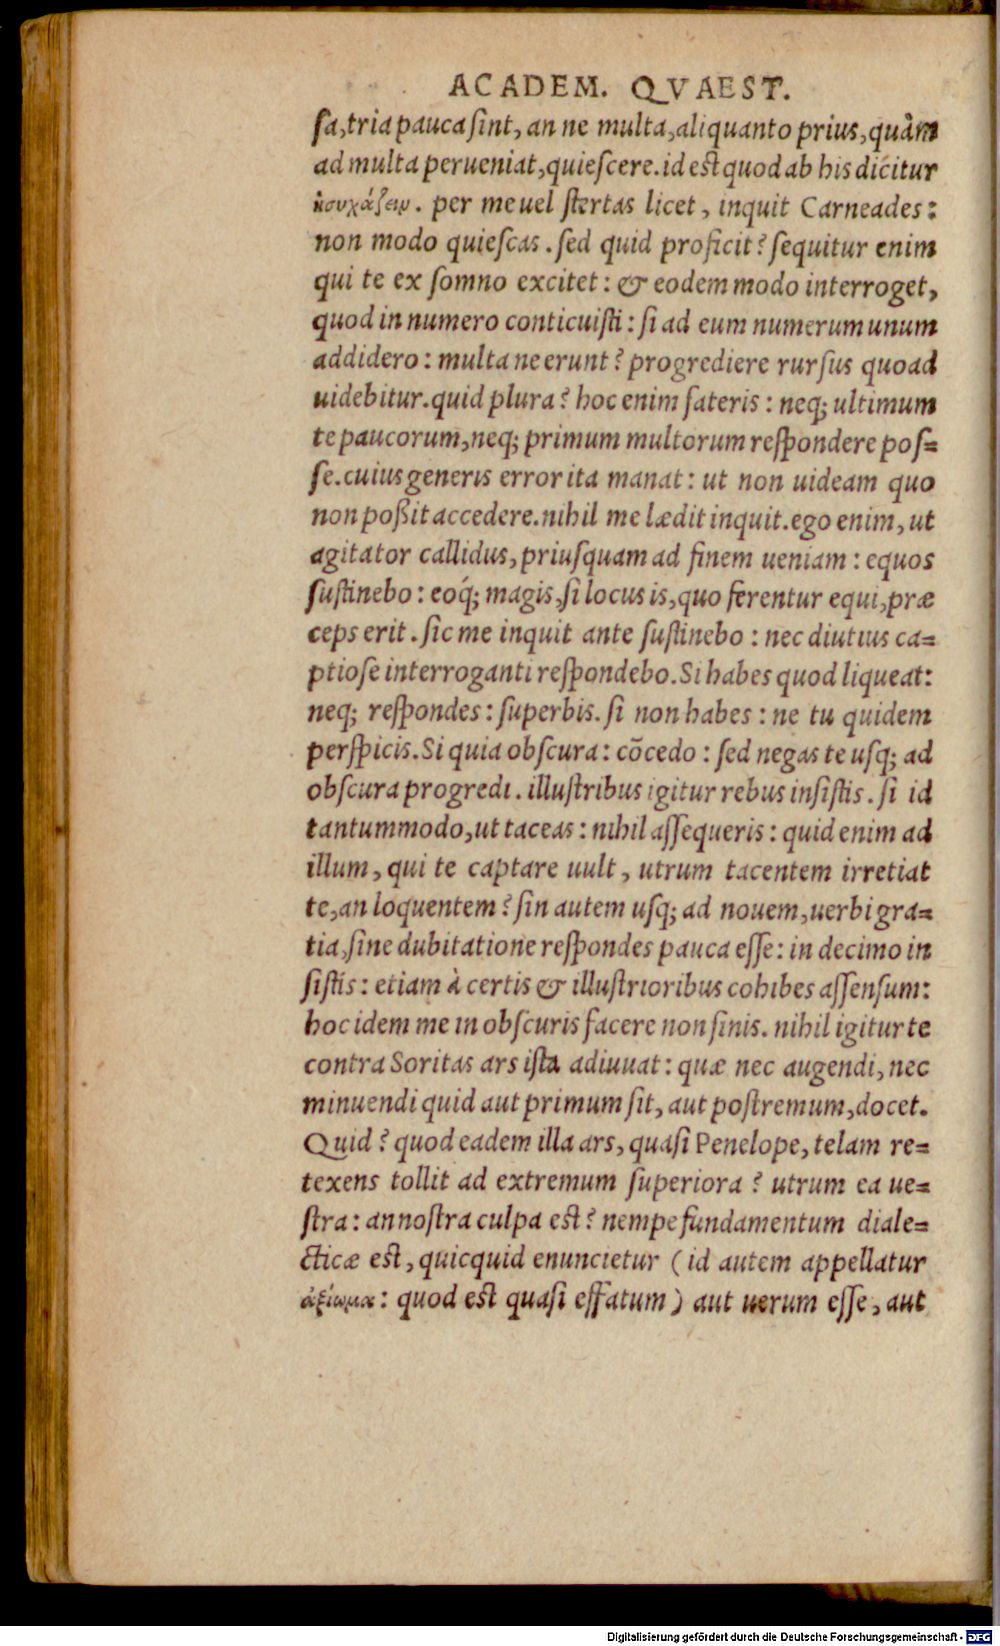 ACADEM. QVAEST.
sa, tria pauca sint, an ne multa, aliquanto prius, quàm
ad multa perueniat, quiescere. id est quod ab his dicitur
ἡσυχάζειν. per me uel stertas licet, inquit Carneades:
non modo quiescas. sed quid proficit? sequitur enim
qui te ex somno excitet: & eodem modo interroget,
quod in numero conticuisti: si ad eum numerum unum
addidero: multa ne erunt? progrediere rursus quoad
uidebitur. quid plura? hoc enim fateris: neq; ultimum
te paucorum, neq; primum multorum respondere pos=
se. cuius generis error ita manat: ut non uideam quo
non poßit accedere. nihil me lædit inquit. ego enim, ut
agitator callidus, priusquam ad finem ueniam: equos
sustinebo: eoq́; magis, si locus is, quo ferentur equi, præ
ceps erit. sic me inquit ante sustinebo: nec diutius ca=
ptiose interroganti respondebo. Si habes quod liqueat:
neq; respondes: superbis. si non habes: ne tu quidem
perspicis. Si quia obscura: cõcedo: sed negas te usq; ad
obscura progredi. illustribus igitur rebus insistis. si id
tantummodo, ut taceas: nihil assequeris: quid enim ad
illum, qui te captare uult, utrum tacentem irretiat
te, an loquentem? sin autem usq; ad nouem, uerbi gra=
tia, sine dubitatione respondes pauca esse: in decimo in
sistis: etiam à certis & illustrioribus cohibes assensum:
hoc idem me in obscuris facere non sinis. nihil igitur te
contra Soritas ars ista adiuuat: quæ nec augendi, nec
minuendi quid aut primum sit, aut postremum, docet.
Quid? quod eadem illa ars, quasi Penelope, telam re=
texens tollit ad extremum superiora? utrum ea ue=
stra: an nostra culpa est? nempe fundamentum diale=
cticæ est, quicquid enuncietur (id autem appellatur
ἀξίωμα: quod est quasi effatum) aut uerum esse, aut
Digitalisierung gefördert durch die Deutsche Forschungsgemeinschaft - DFG